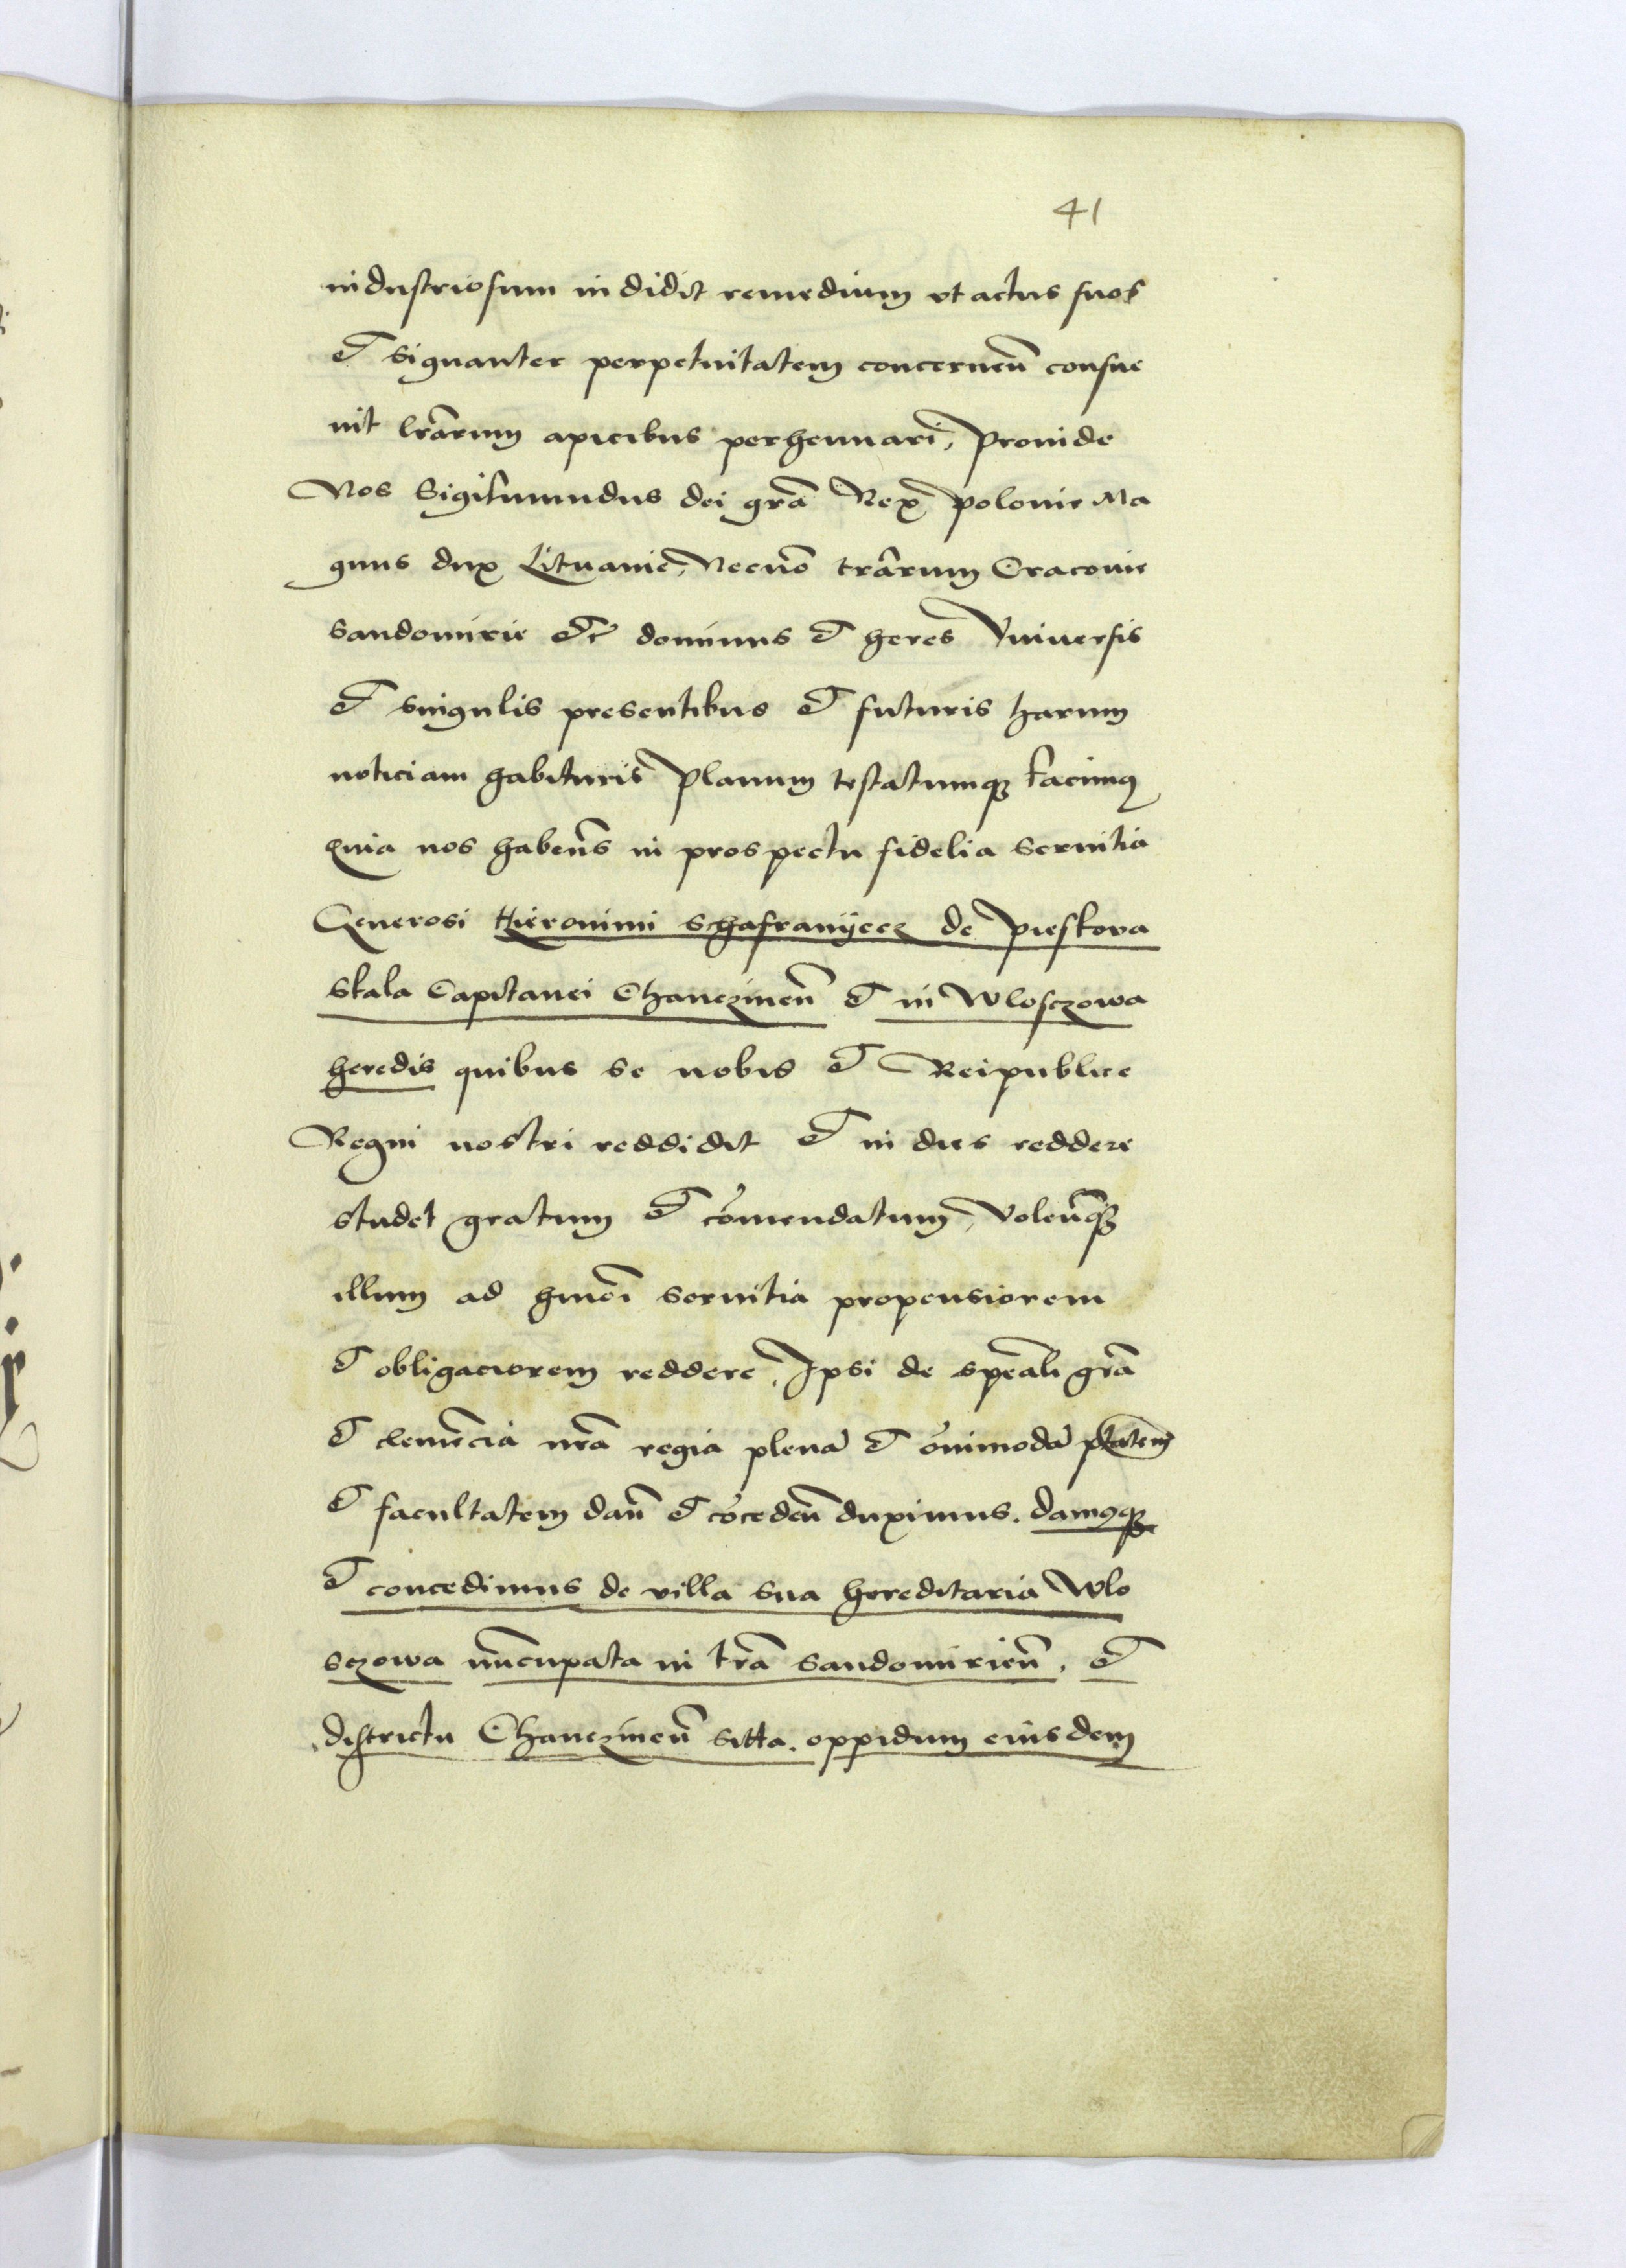 41
industriosum indidit remedium vt actus suos
et signanter perpetuitatem concerneñ consue
uit lrãrum apicibus perhennari, Proinde
Nos Sigismundus dei grã Rex Polonie Ma
gnus dux Lituanie, Necnõ trãrum Cracouie
Sandomirie etc̃ dominus et heres Vniuersis
et singulis presentibus et futuris harum
noticiam habituris Planum testatumqꝫ facimꝰ
Quia nos habeñs in prospectu fidelia seruitia
Generosi Hieronimi Schafranijecz de Pieskova
Skala Capitanei Chanczineñ et in Wlosczowa
heredis quibus se nobis et Reipublice
Regni nostri reddidit et in dies reddere
studet gratum et cõmendatum, Voleñqꝫ
illum ad hmõi seruitia propensiorem
et obligaciorem reddere, Ipsi de speali grã
et clemẽcia nrã regia plenã et õnimodã ptatem̃
et facultatem dañ et cõcedeñ duximus. damꝰqꝫ
et concedimus de villa sua hereditaria Wlo
sczowa nũcupata in trã Sandomirieñ, et
districtu Chanczineñ sitta. oppidum eiusdem